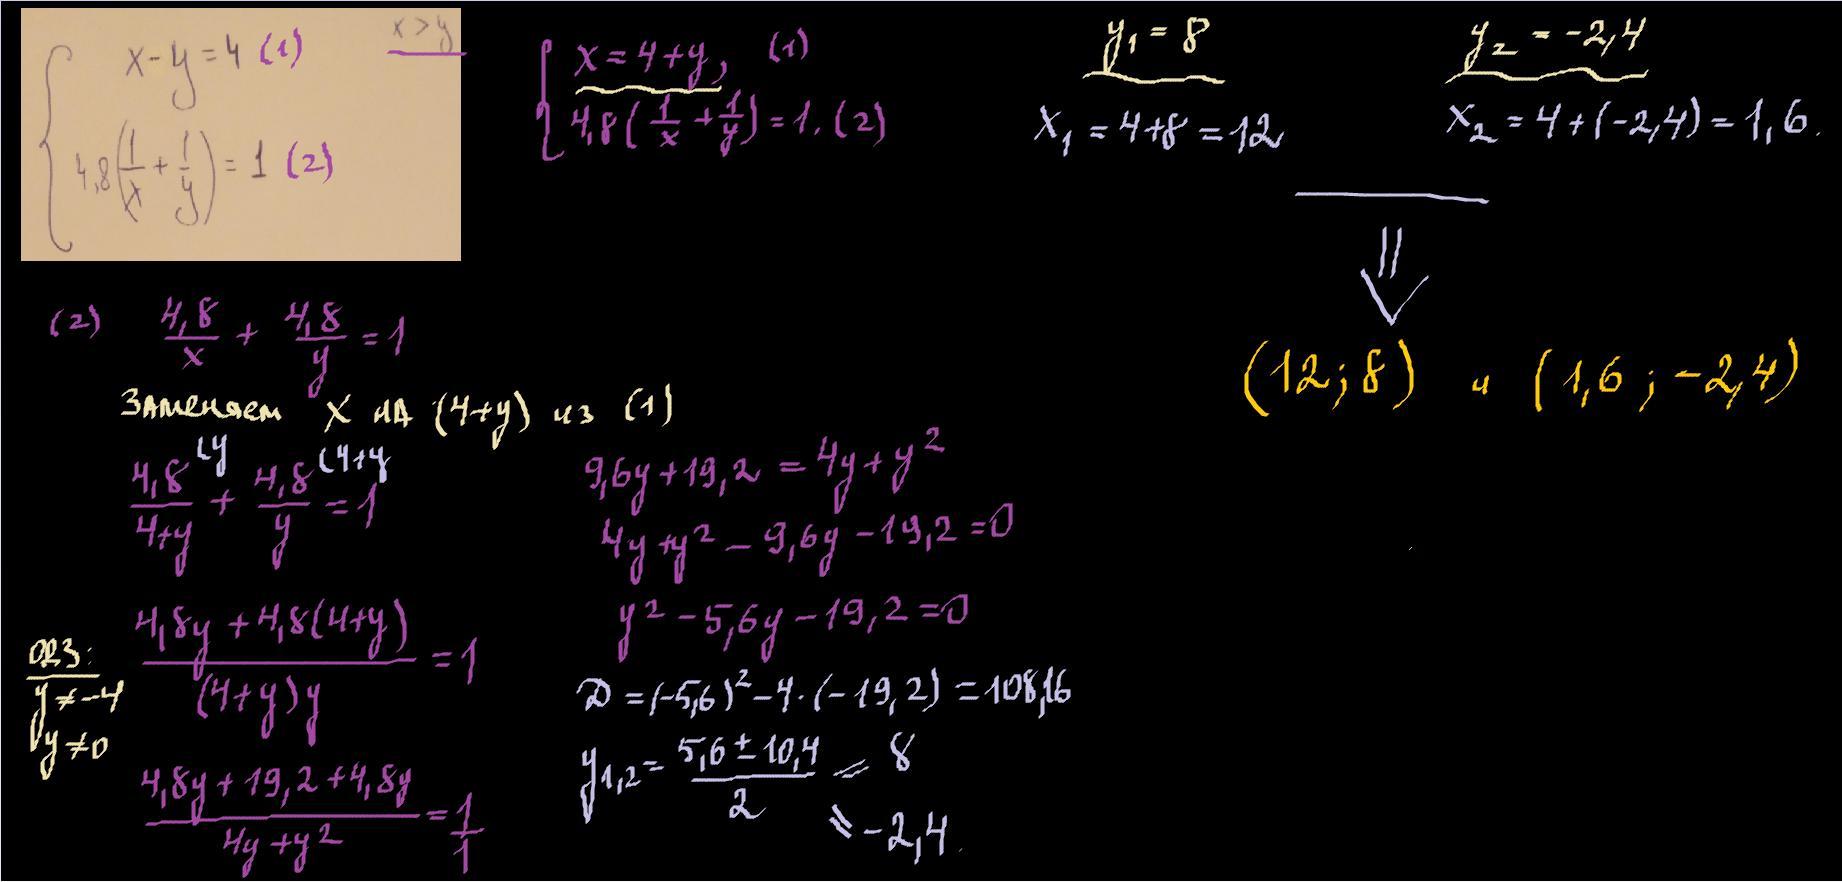 x - y = 4 (1)
x > y
4,8(1/x + 1/y) = 1 (2)
x = 4 + y, (1)
4,8(1/x + 1/y) = 1. (2)
y₁ = 8
x₁ = 4 + 8 = 12
y₂ = -2,4
x₂ = 4 + (-2,4) = 1,6.
⇓
(12; 8) и (1,6; -2,4)
(2) 4,8/x + 4,8/y = 1
Заменяем x на (4+y) из (1)
4,8/(4+y) (y + 4,8/y (4+y = 1
ОДЗ:
y ≠ -4
y ≠ 0
(4,8y + 4,8(4+y))/((4+y)y) = 1
(4,8y + 19,2 + 4,8y)/(4y + y²) = 1/1
9,6y + 19,2 = 4y + y²
4y + y² - 9,6y - 19,2 = 0
y² - 5,6y - 19,2 = 0
D = (-5,6)² - 4·(-19,2) = 108,16
y₁,₂ = (5,6 ± 10,4)/2 = 8
= -2,4.